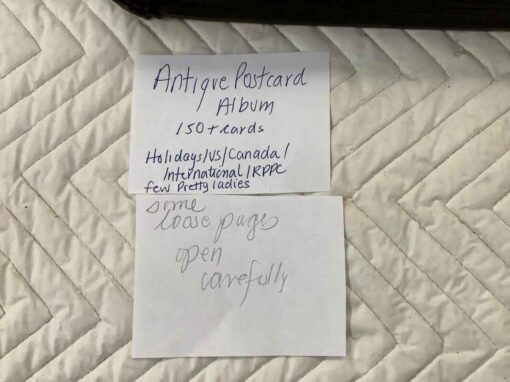 Antique Postcard
Album
150+ cards
Holidays/US/Canada/
International/RPPC
few Pretty ladies
some
loose pages
open
carefully